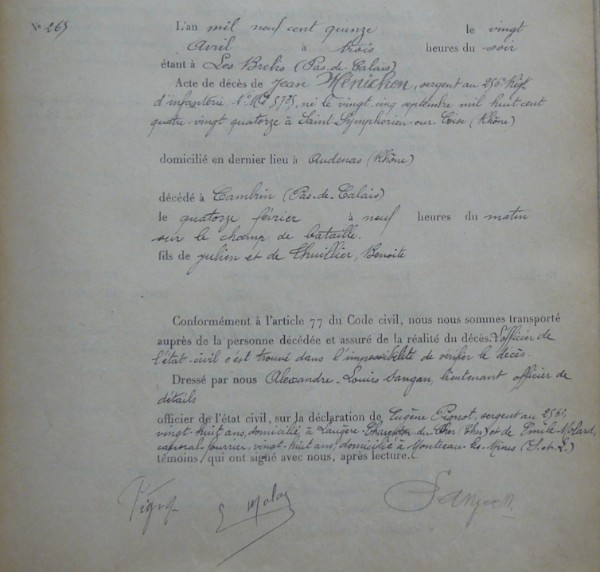 N° 265
L'an mil neuf cent quinze le vingt
Avril à trois heures du soir
étant à Les Brebis (Pas-de-Calais)
Acte de décès de Jean Ménichon, sergent au 256e Régt
d'infanterie né le vingt cinq septembre mil huit cent
quatre-vingt quatorze à Saint Symphorien-sur-Coise (Rhône)
domicilié en dernier lieu à Audenas (Rhône)
décédé à Cambrin (Pas-de-Calais)
le quatorze février à neuf heures du matin
sur le champ de bataille.
fils de Julien et de Thuillier, Benoite
Conformément à l'article 77 du Code civil, nous nous sommes transporté
auprès de la personne décédée et assuré de la réalité du décès. L'officier de
l'état-civil s'est trouvé dans l'impossibilité de vérifier le décès.
Dressé par nous Alexandre-Louis Sangan, lieutenant officier de
détails
officier de l'état civil, sur la déclaration de Eugène sergent au 256e,
vingt-huit ans, domicilié à du Cher (Cher) et de Emile
caporal fourrier, vingt-huit ans, domicilié à Montceau-les-Mines (S.-et-L.)
témoins qui ont signé avec nous, après lecture.